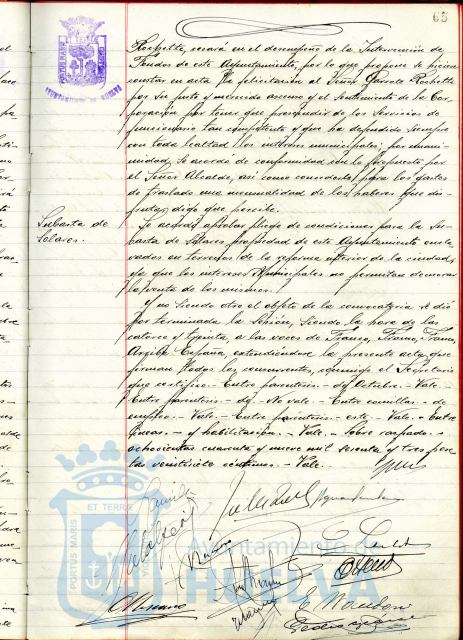 65
Rochette, cesará en el desempeño de la Intervención de
Fondos de este Ayuntamiento, por lo que propone se hiciera
constar en acta la felicitación al Señor García Rochette
por su justo y merecido ascenso y el sentimiento de la Cor-
poración por tener que prescindir de los servicios de
funcionario tan competente y que ha defendido siempre
con toda lealtad los intereses municipales; por unani-
midad, se acordó de conformidad con lo propuesto por
el Señor Alcalde, así como concederle para los gastos
de traslado una mensualidad de los haberes que dis-
fruta, digo que percibe.
Subasta de
Solares.
Se acordó aprobar pliego de condiciones para la Su-
basta de Solares propiedad de este Ayuntamiento encla-
vados en terrenos de la reforma interior de la ciudad,
ya que los intereses Municipales no permiten demorar
la venta de los mismos.
Y no siendo otro el objeto de la convocatoria se dió
por terminada la Sesión, siendo la hora de las
catorce y treinta, a las voces de Franco, Franco, Franco,
Arriba España, extendiéndose la presente acta que
firman todos los concurrentes, conmigo el Secretario
que certifico.- Entre paréntesis - de Octubre - Vale.-
Entre paréntesis - de - No vale.- Entre comillas - de
empleo - Vale.- Entre paréntesis - este - Vale.- Entre
líneas.- y habilitación.- Vale.- Sobre raspado.-
ochocientas cuarenta y nueve mil setenta y tres pese-
tas veintisiete céntimos.- Vale.
ET TERRAE
PORTUS MARIS
Ayuntamiento de
HUELVA